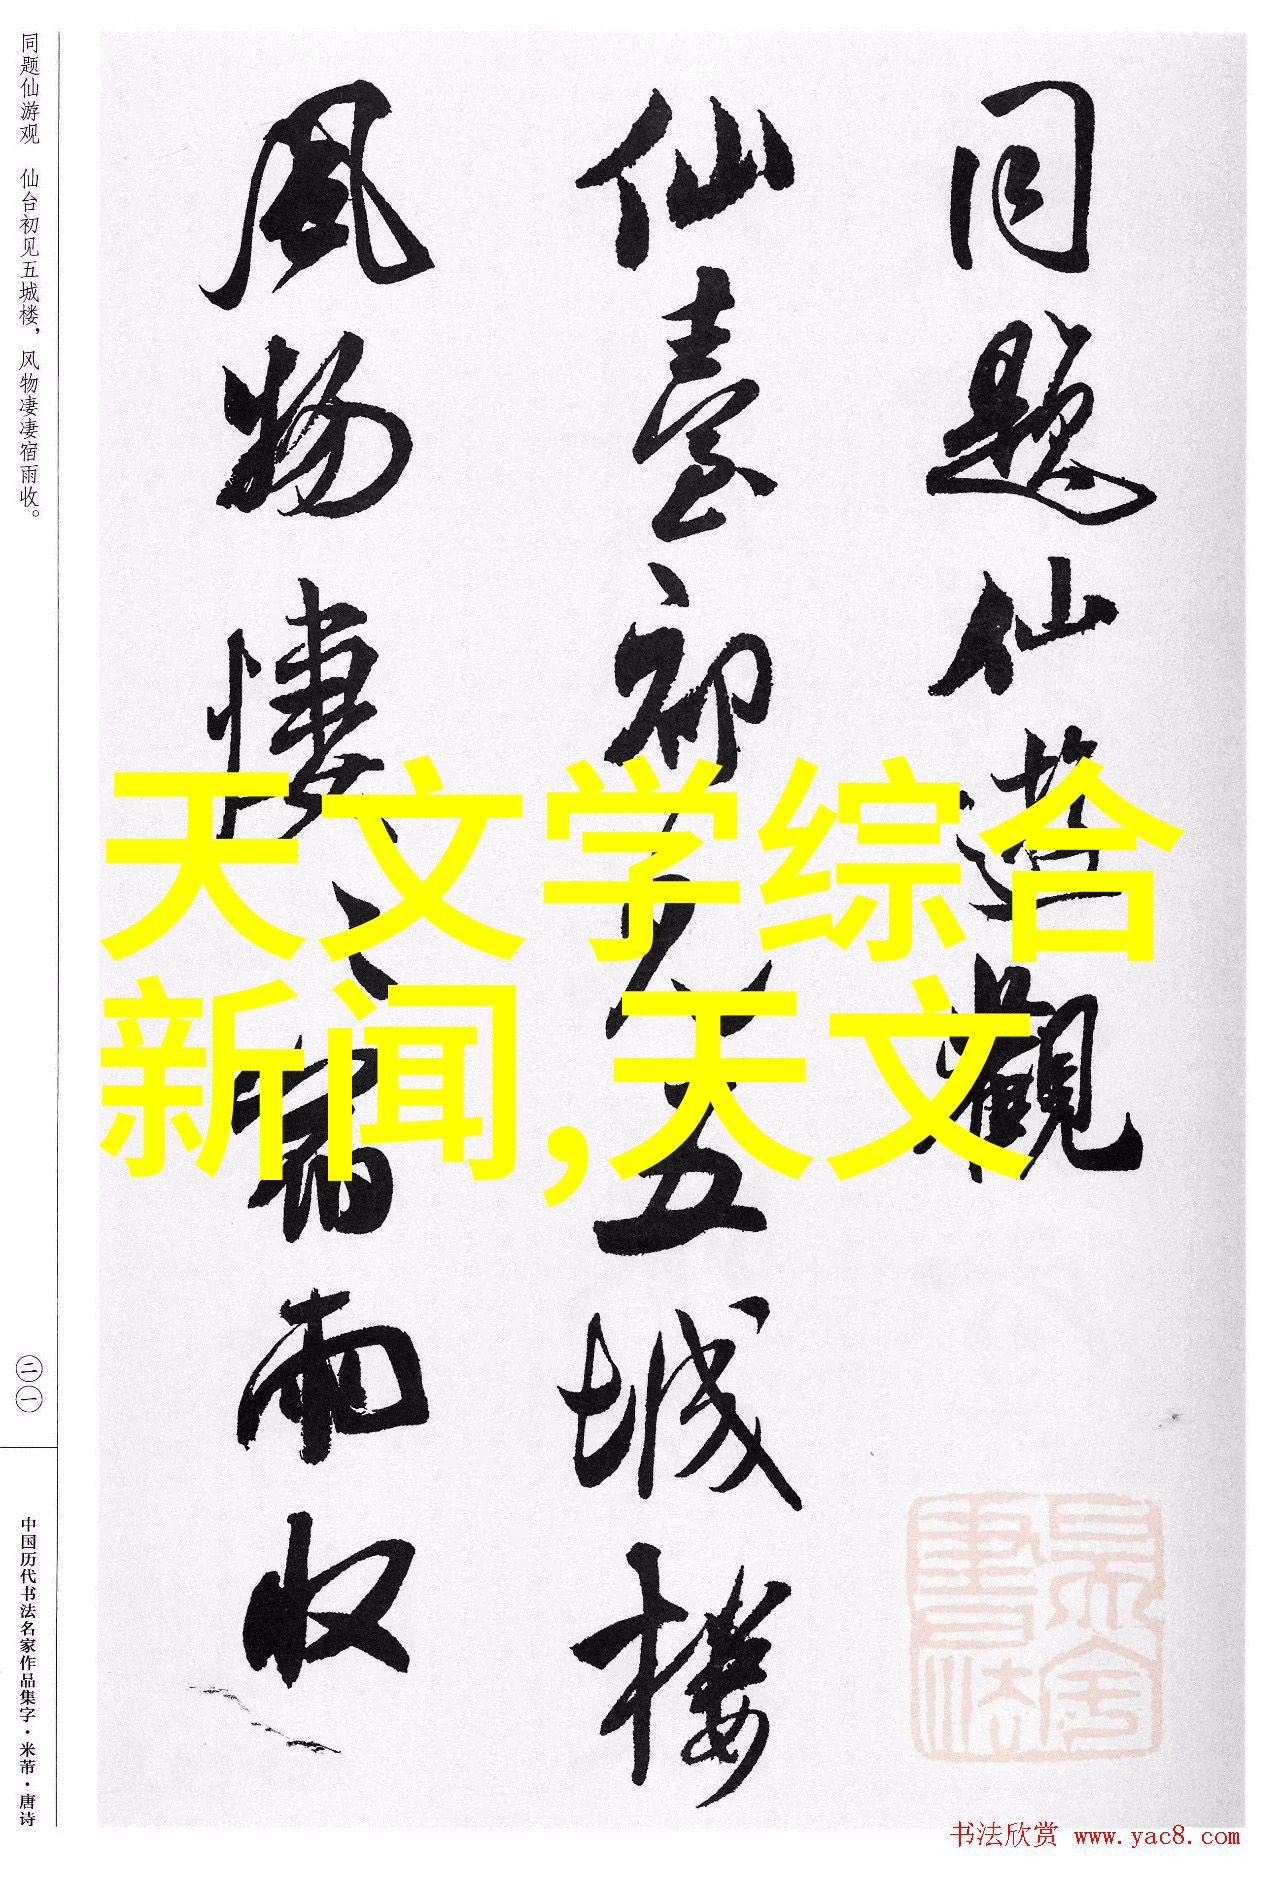 同题仙遊觀
仙臺初见五城楼
風物悽々宿雨收
天文学综合
新闻,天文
同题仙游观 仙台初见五城楼，风物凄凄宿雨收。
二一
中国历代书法名家作品集字·米芾·唐诗
书法欣赏 www.yac8.com